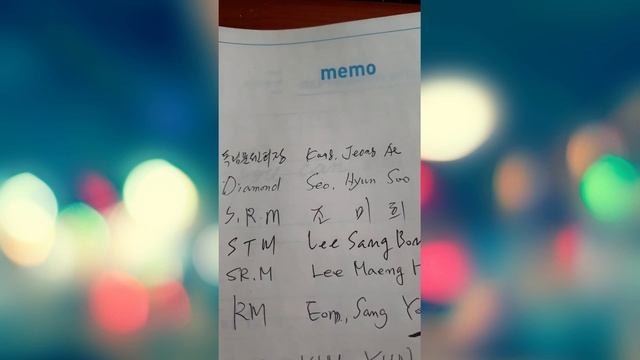 memo
독립문센터장 Kang, Jeong Ae
Diamond Seo, Hyun Soo
S.R.M 조 미 희
STM Lee Sang
SR.M Lee Maeng
RM Eom, Sang